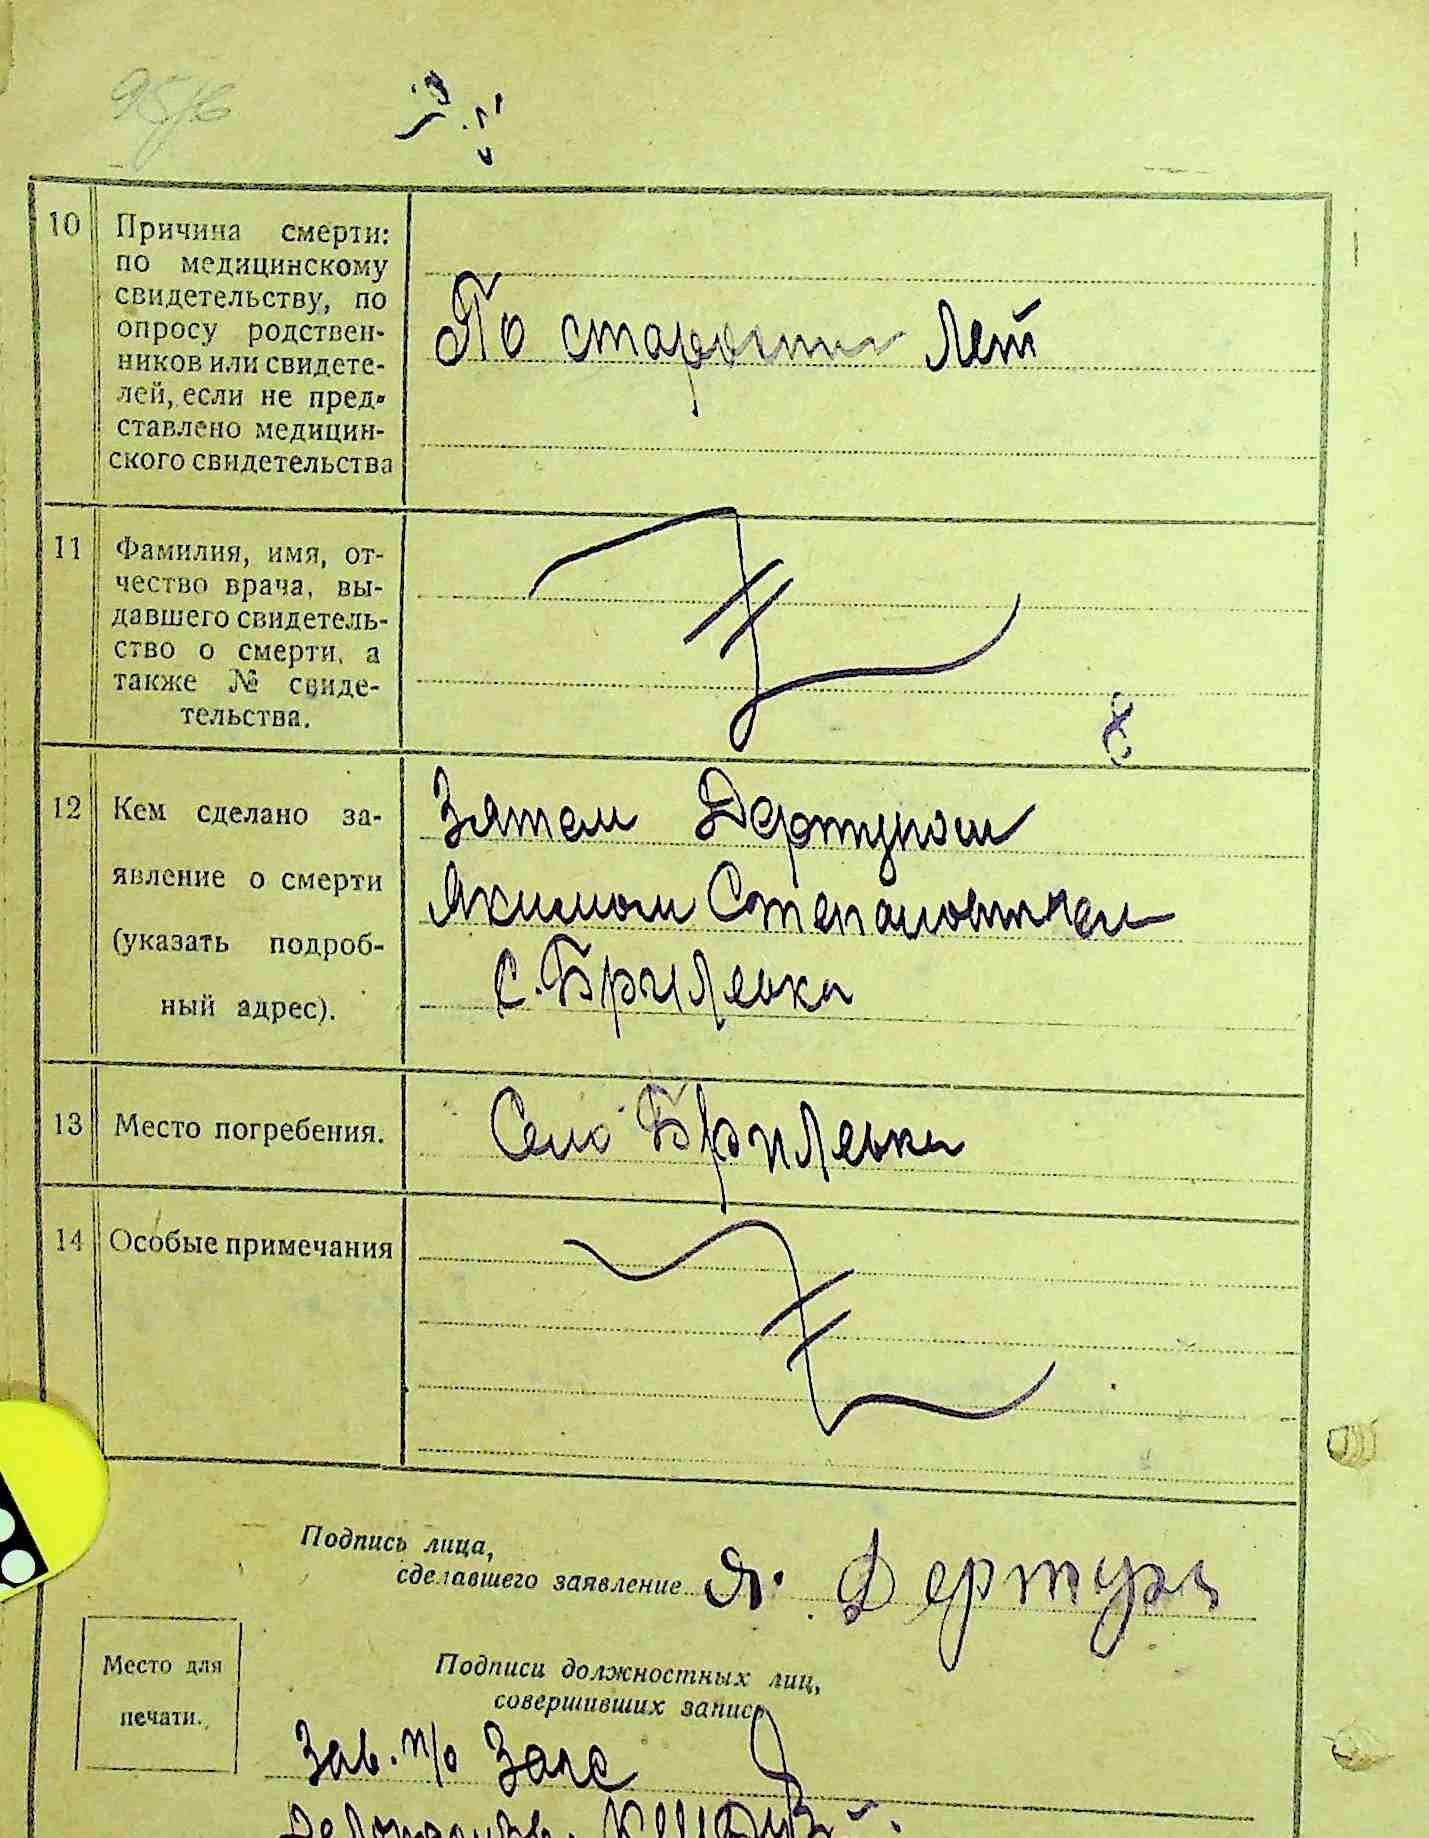 10 Причина смерти:
по медицинскому
свидетельству, по
опросу родствен-
ников или свидете-
лей, если не пред-
ставлено медицин-
ского свидетельства
По старости лет
11 Фамилия, имя, от-
чество врача, вы-
давшего свидетель-
ство о смерти, а
также № свиде-
тельства.
12 Кем сделано за-
явление о смерти
(указать подроб-
ный адрес).
Зятем Дертуном
Якимом Степановичем
с. Брилевка
13 Место погребения.
Село Брилевка
14 Особые примечания
Подпись лица,
сделавшего заявление Я. Дертун
Место для
печати.
Подписи должностных лиц,
совершивших запись
Зав. п/о Загс